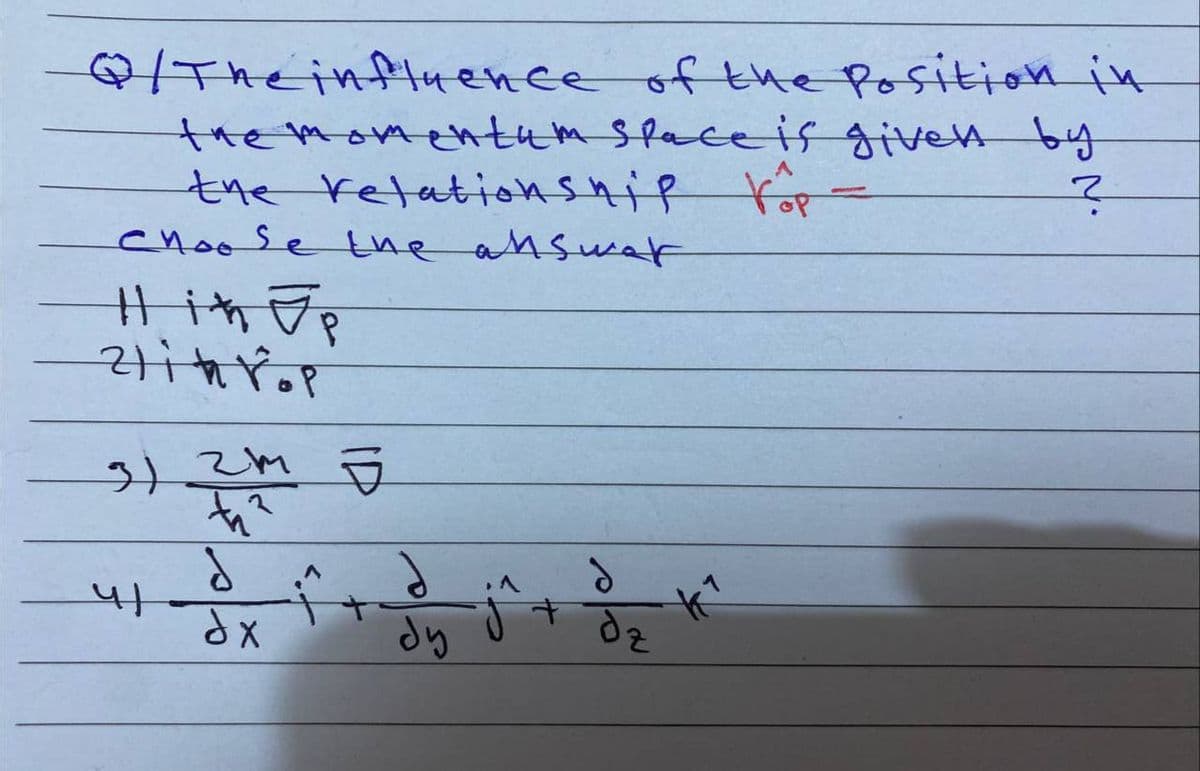 Q/The influence of the Position in
the momentum space is given by
the relationship r̂op = ?
choose the answar
1) iħ ∇̄p
2) iħ r̂op
3) 2m/ħ² ∇̄
4) ∂/∂x î + ∂/∂y ĵ + ∂/∂z k̂